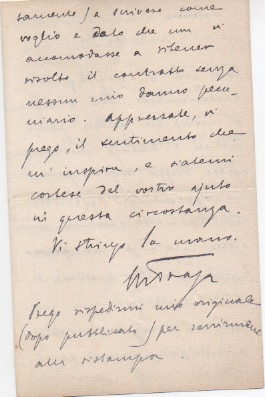 samente) a scrivere come
voglio e dato che non vi
accomodasse a ritener
risolto il contratto senza
nessun mio danno pecu-
niario. Apprezzate, vi
prego, il sentimento che
m'inspira, e siatemi
cortese del vostro ajuto
in questa circostanza.
Vi stringo la mano.
Prego rispedirmi mio originale
(dopo pubblicato) per servirmene
alla ristampa.